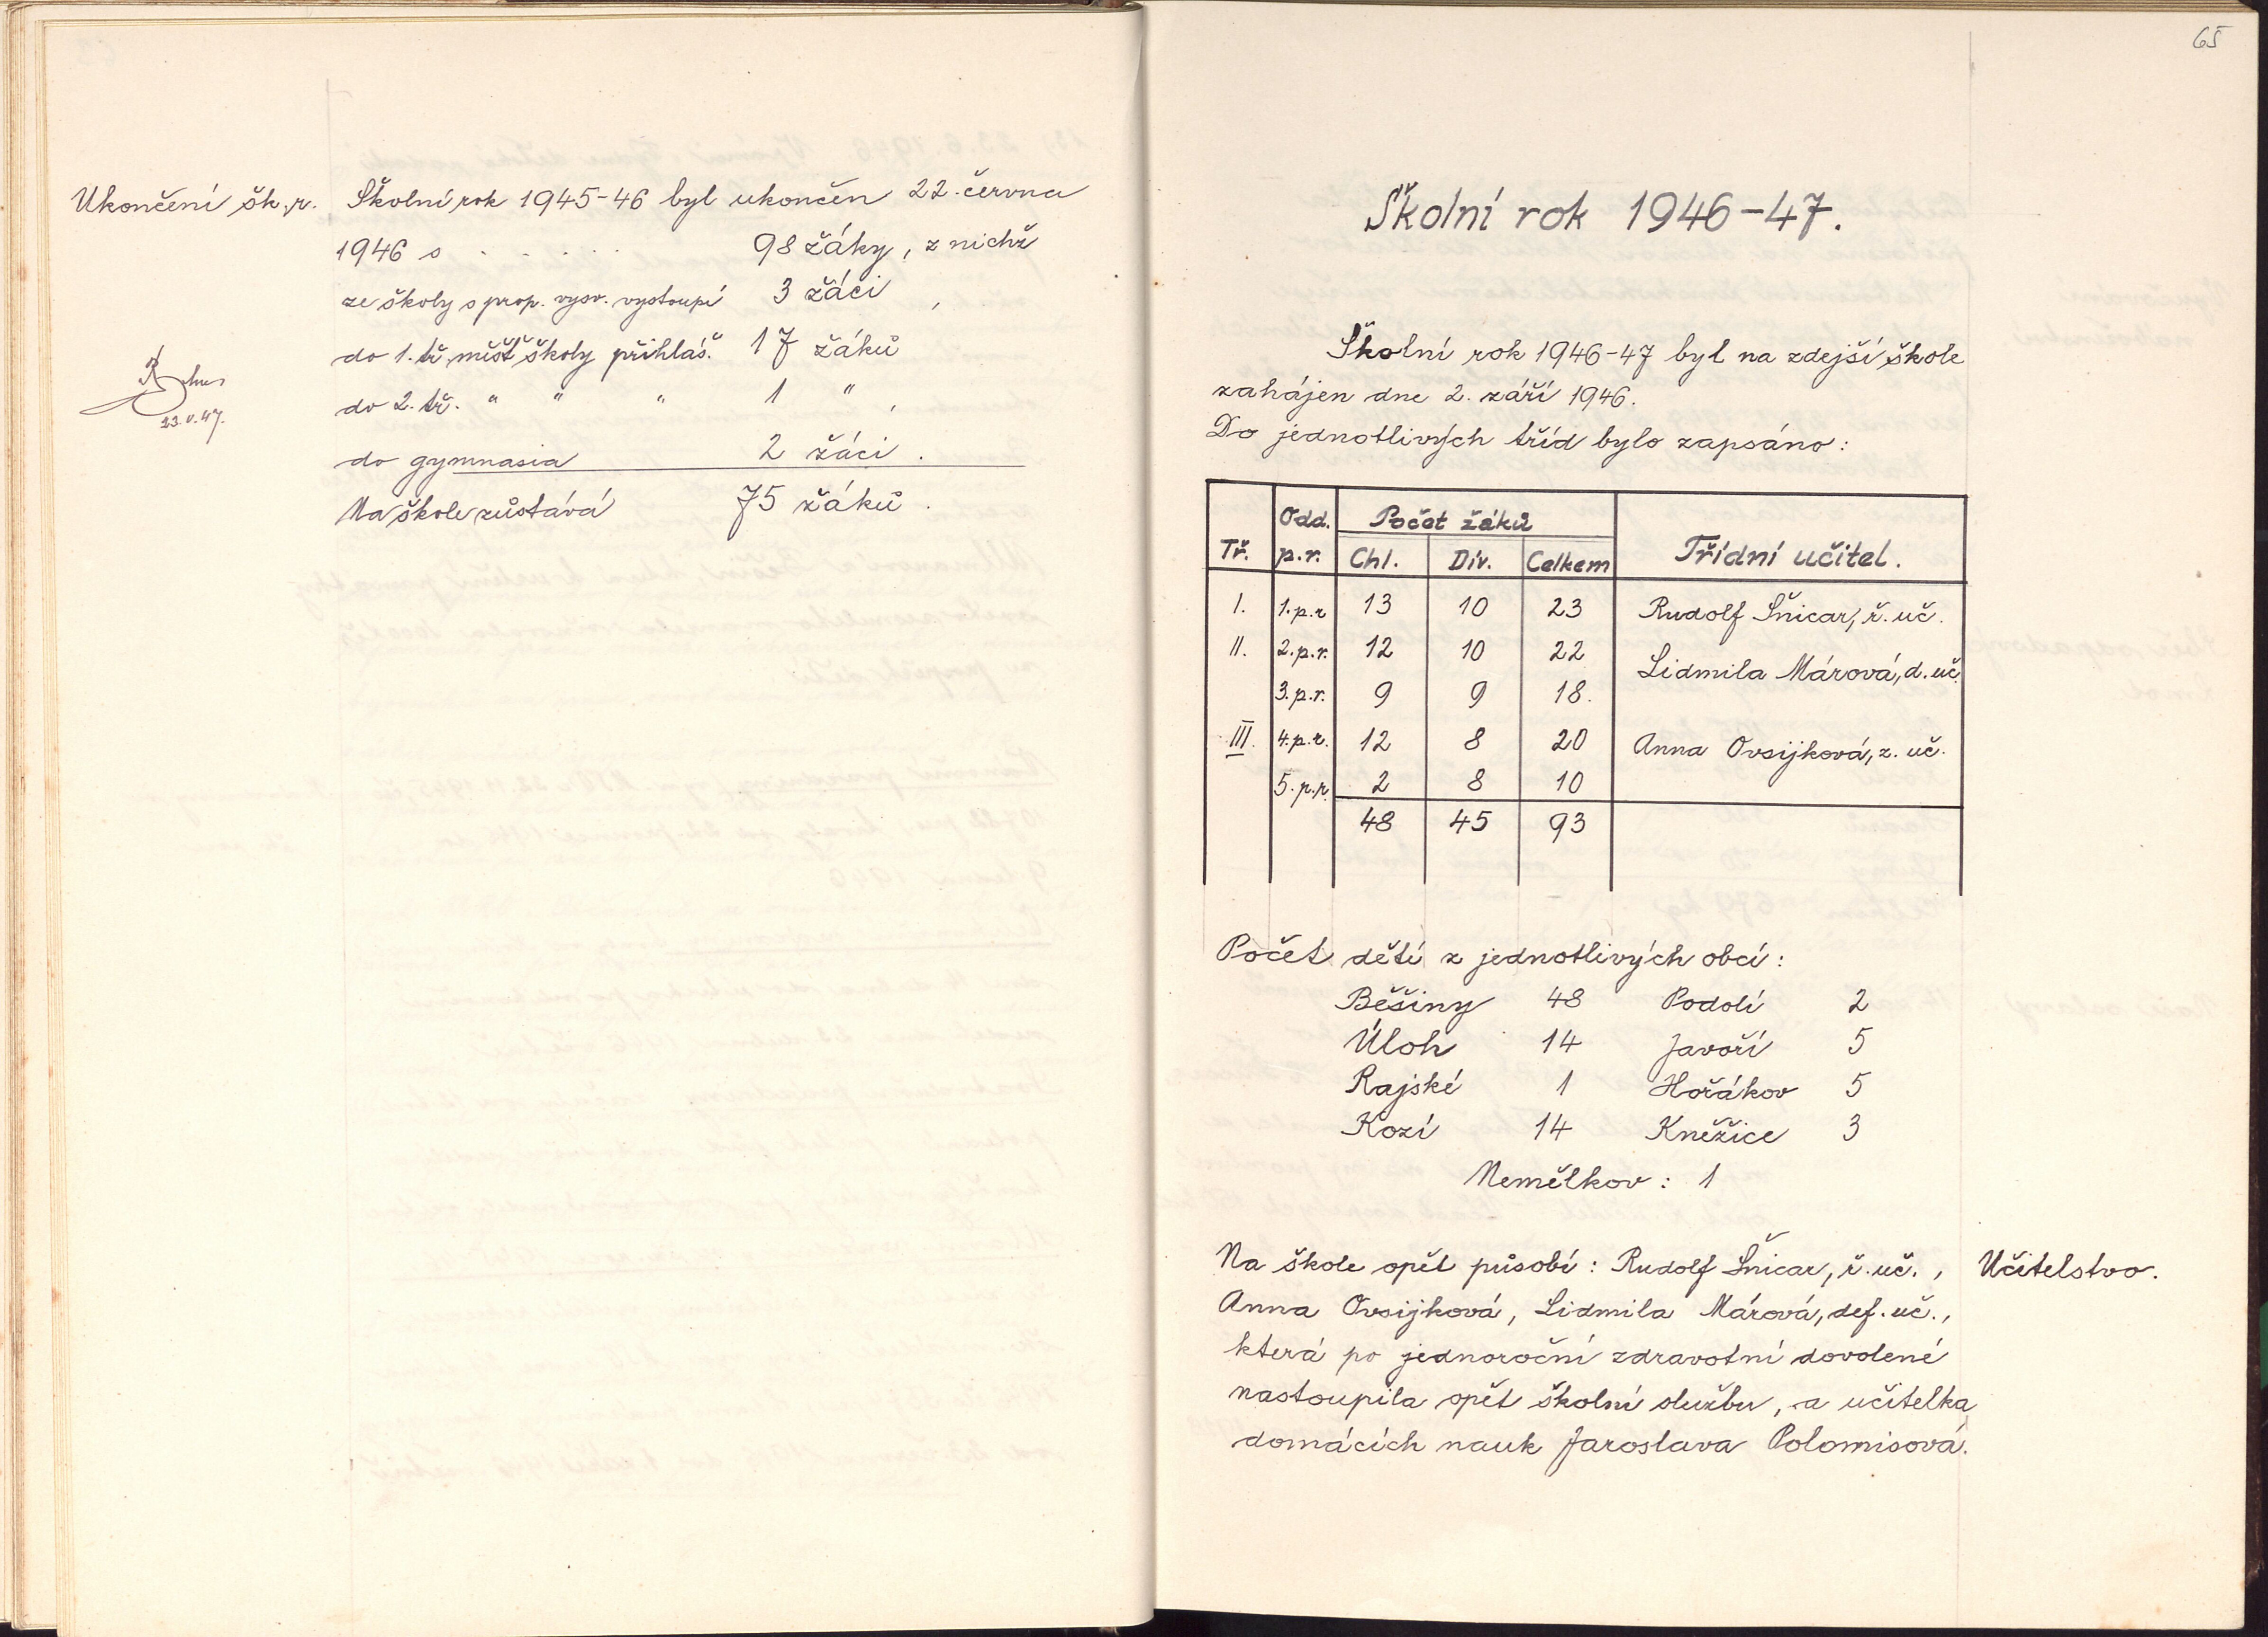 Ukončení šk. r.
Školní rok 1945-46 byl ukončen 22. června
1946 s . . . . . 98 žáky, z nichž
ze školy s prop. vysv. vystoupí 3 žáci ,
do 1. tř. měšť. školy přihláš. 17 žáků
do 2. tř. " " " 1 " ,
do gymnasia 2 žáci .
Na škole zůstává 75 žáků .
23.V.47.
65
Školní rok 1946-47.
Školní rok 1946-47 byl na zdejší škole
zahájen dne 2. září 1946.
Do jednotlivých tříd bylo zapsáno:
Tř. Odd. p.r. Počet žáků Třídní učitel.
Chl. Dív. Celkem
I. 1.p.r 13 10 23 Rudolf Šnicar, ř. uč.
II. 2.p.r. 12 10 22 Lidmila Márová, d. uč.
3.p.r. 9 9 18.
III. 4.p.r. 12 8 20 Anna Ovsijková, z. uč.
5.p.r. 2 8 10
48 45 93
Počet dětí z jednotlivých obcí:
Běšiny 48 Podolí 2
Úloh 14 Javoří 5
Rajské 1 Hořákov 5
Kozí 14 Kněžice 3
Nemělkov: 1
Na škole opět působí: Rudolf Šnicar, ř. uč. ,
Učitelstvo.
Anna Ovsijková, Lidmila Márová, def. uč.,
která po jednoroční zdravotní dovolené
nastoupila opět školní službu, a učitelka
domácích nauk Jaroslava Polomisová.